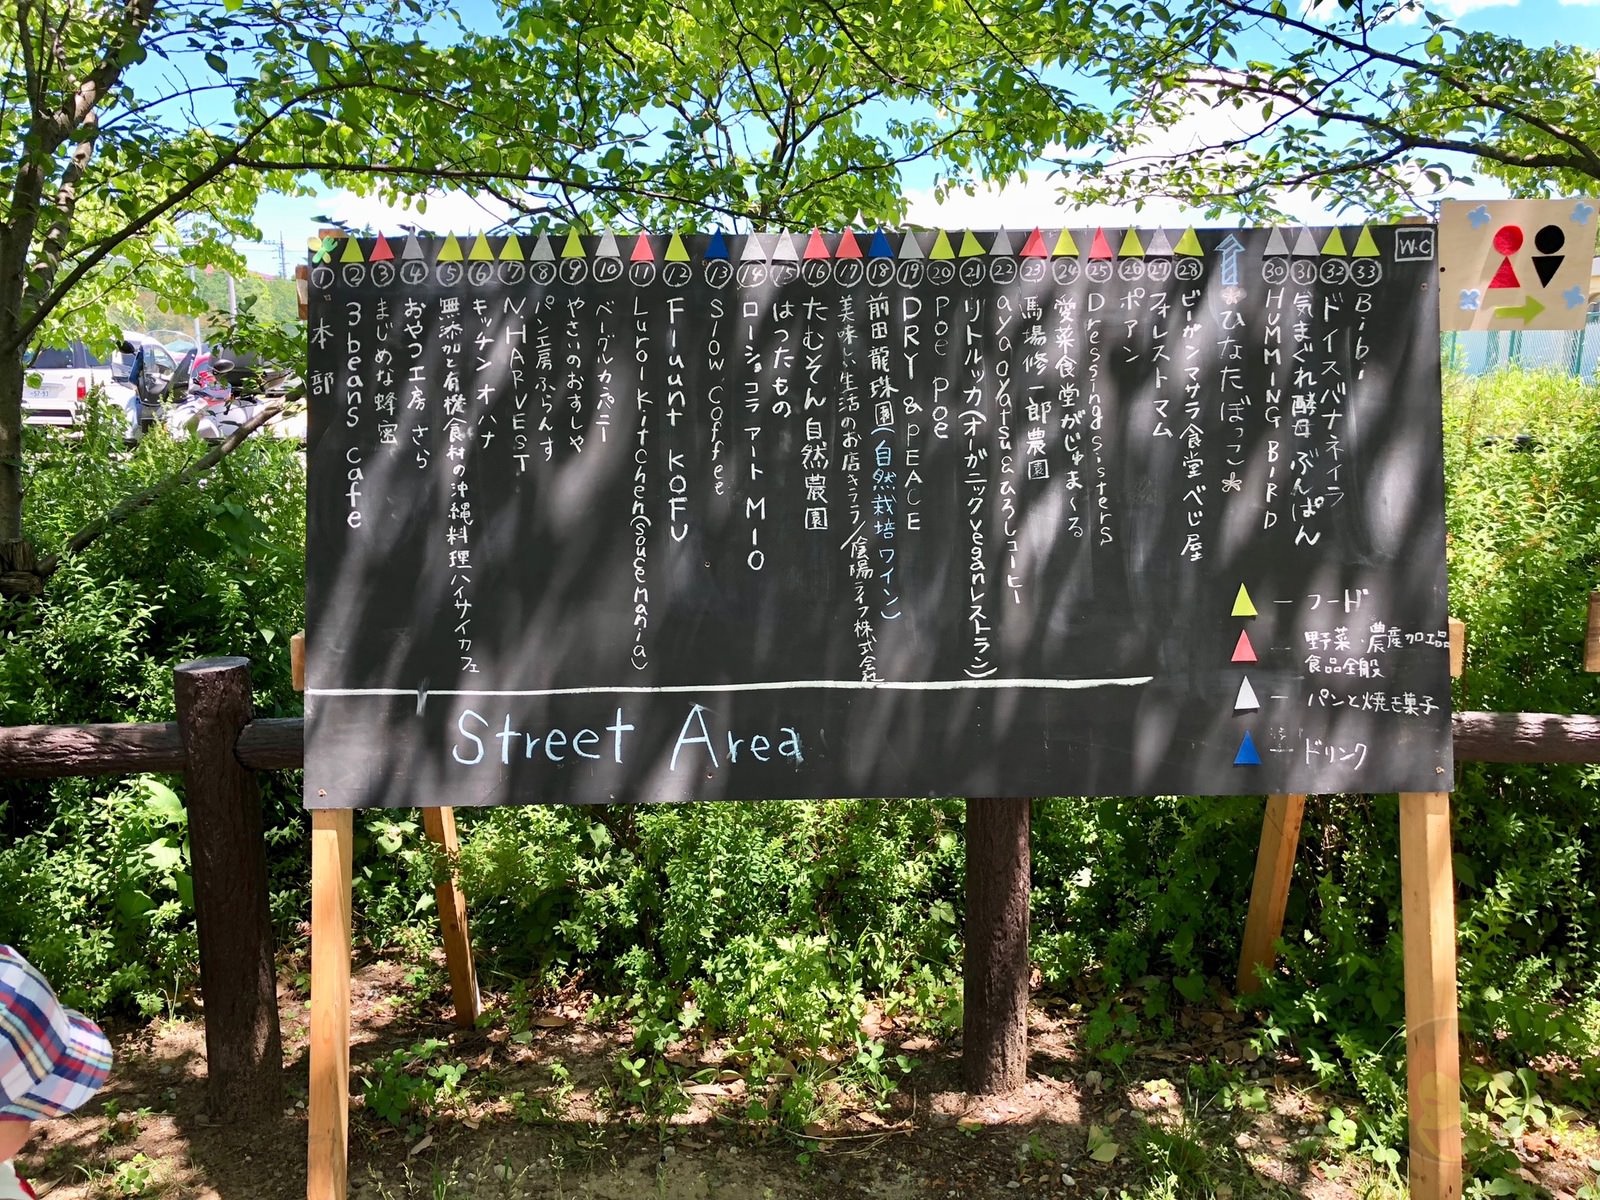 ① 本部
② 3beans cafe
③ まじめな蜂蜜
④ おやつ工房 さら
⑤ 無添加と有機食材の沖縄料理ハイサイカフェ
⑥ キッチン オハナ
⑦ N.HARVEST
⑧ パン工房ふらんす
⑨ やさいのおすしや
⑩ ベーグルカンパニー
⑪ Luroi Kitchen(Soucemania)
⑫ Fluunt KOFU
⑬ Slow Coffee
⑭ ローショコラ アート MIO
⑮ はったもの
⑯ たむそん自然農園
⑰ 美味しい生活のお店キララ/陰陽ライフ株式会社
⑱ 前田龍珠園(自然栽培ワイン)
⑲ DRY & PEACE
⑳ Poe Poe
㉑ リトルッカ(オーガニックveganレストラン)
㉒ ayaoyatsu&ひろしコーヒー
㉓ 馬場修一郎農園
㉔ 愛菜食堂がじゅま〜る
㉕ Dressingsisters
㉖ ポアン
㉗ フォレストマム
㉘ ビーガンマサラ食堂べじ屋
ひなたぼっこ
㉚ HUMMING BIRD
㉛ 気まぐれ酵母ぶんぱん
㉜ ドイスバナネイラ
㉝ Bibi
W・C
ー フード
野菜・農産加工品
食品全般
ー パンと焼き菓子
ー ドリンク
Street Area